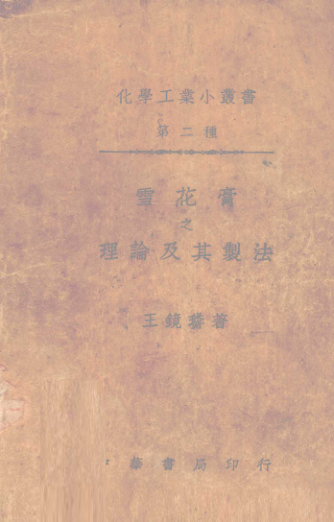 化學工業小叢書
第二種
雪花膏
之
理論及其製法
王鏡著
華書局印行